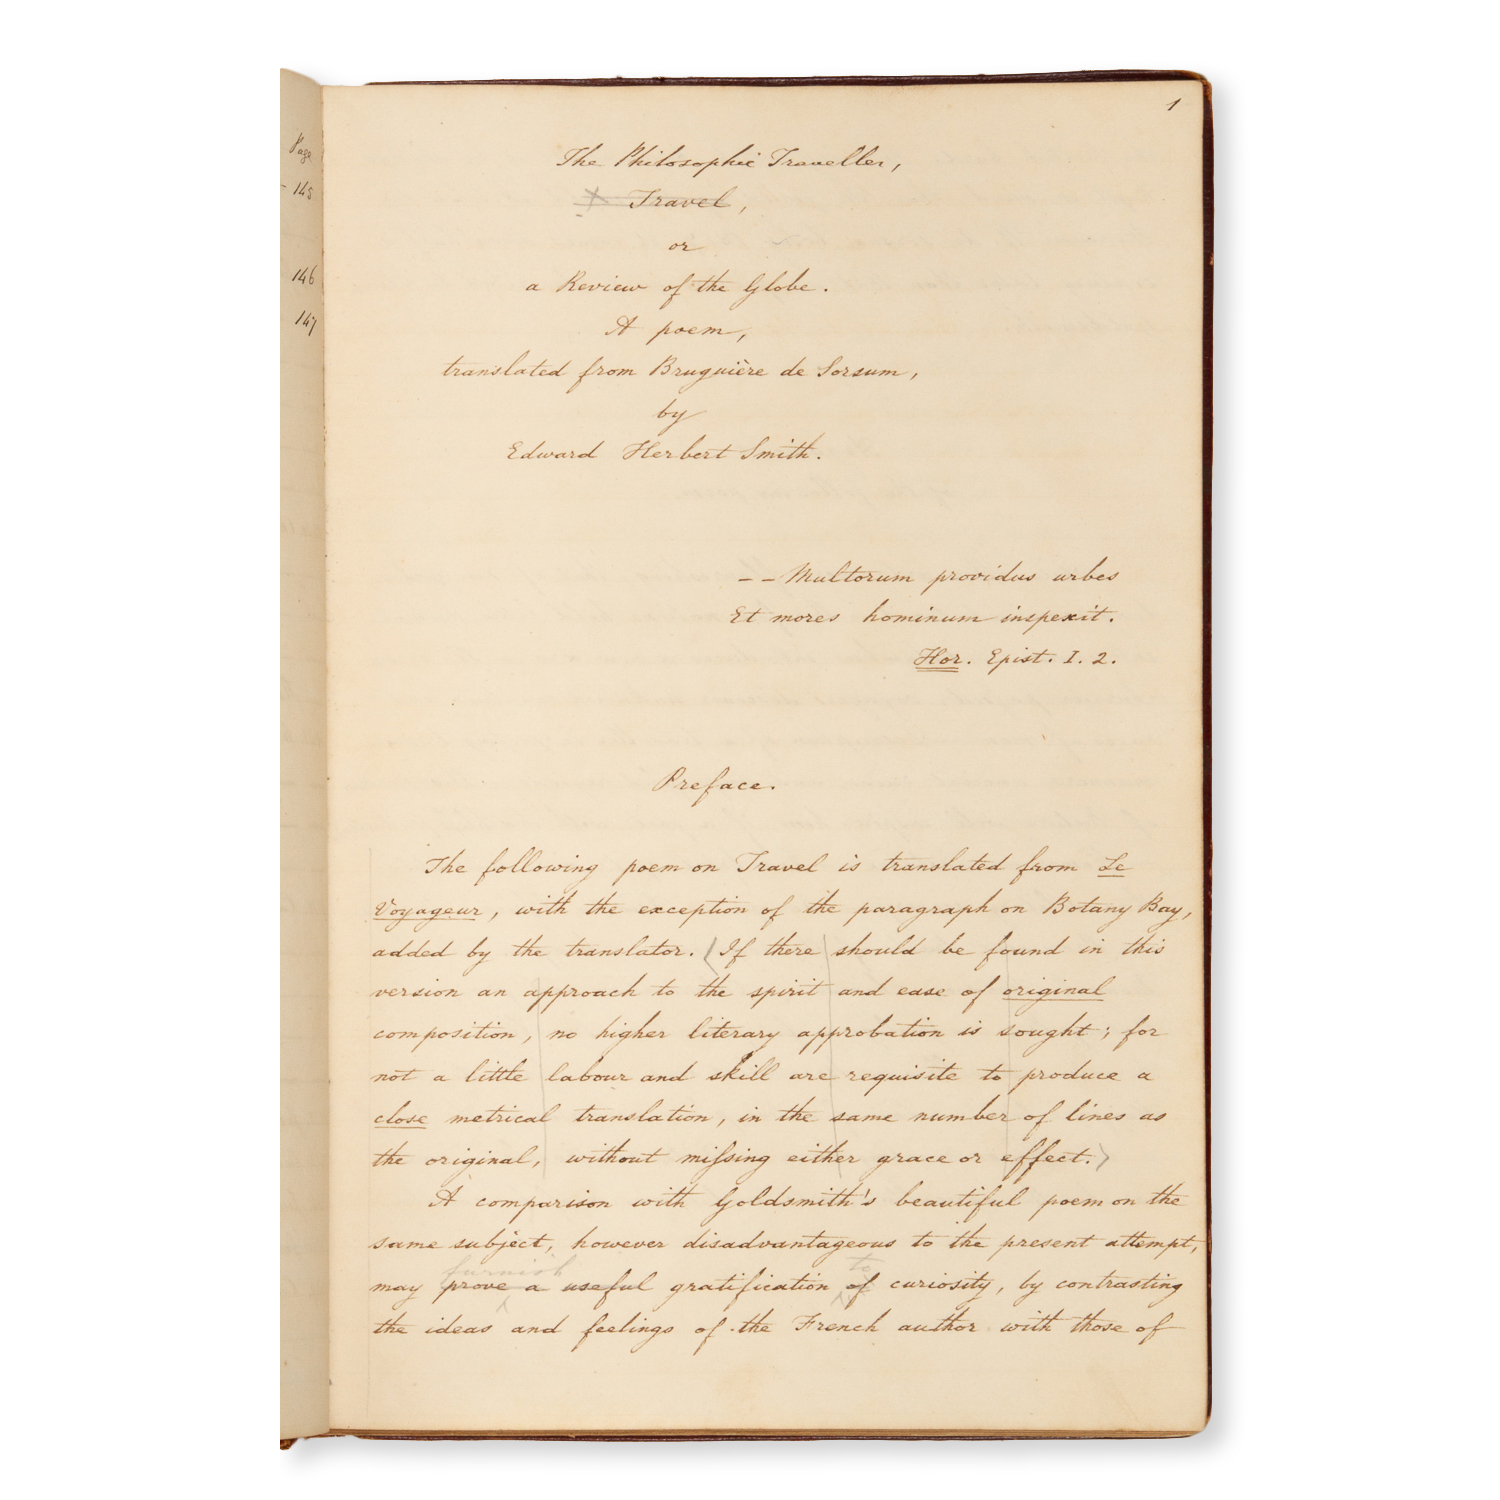 Page
145
146
147
1
The Philosophic Traveller,
Travel,
or
a Review of the Globe.
A poem,
translated from Bruguière de Sorsum,
by
Edward Herbert Smith.
– – Multorum providus urbes
Et mores hominum inspexit.
Hor. Epist. I. 2.
Preface.
The following poem on Travel is translated from Le
Voyageur, with the exception of the paragraph on Botany Bay,
added by the translator. (If there should be found in this
version an approach to the spirit and ease of original
composition, no higher literary approbation is sought; for
not a little labour and skill are requisite to produce a
close metrical translation, in the same number of lines as
the original, without miſsing either grace or effect.)
A comparison with Goldsmith's beautiful poem on the
same subject, however disadvantageous to the present attempt,
furnish to
may prove a useful gratification of curiosity, by contrasting
the ideas and feelings of the French author with those of